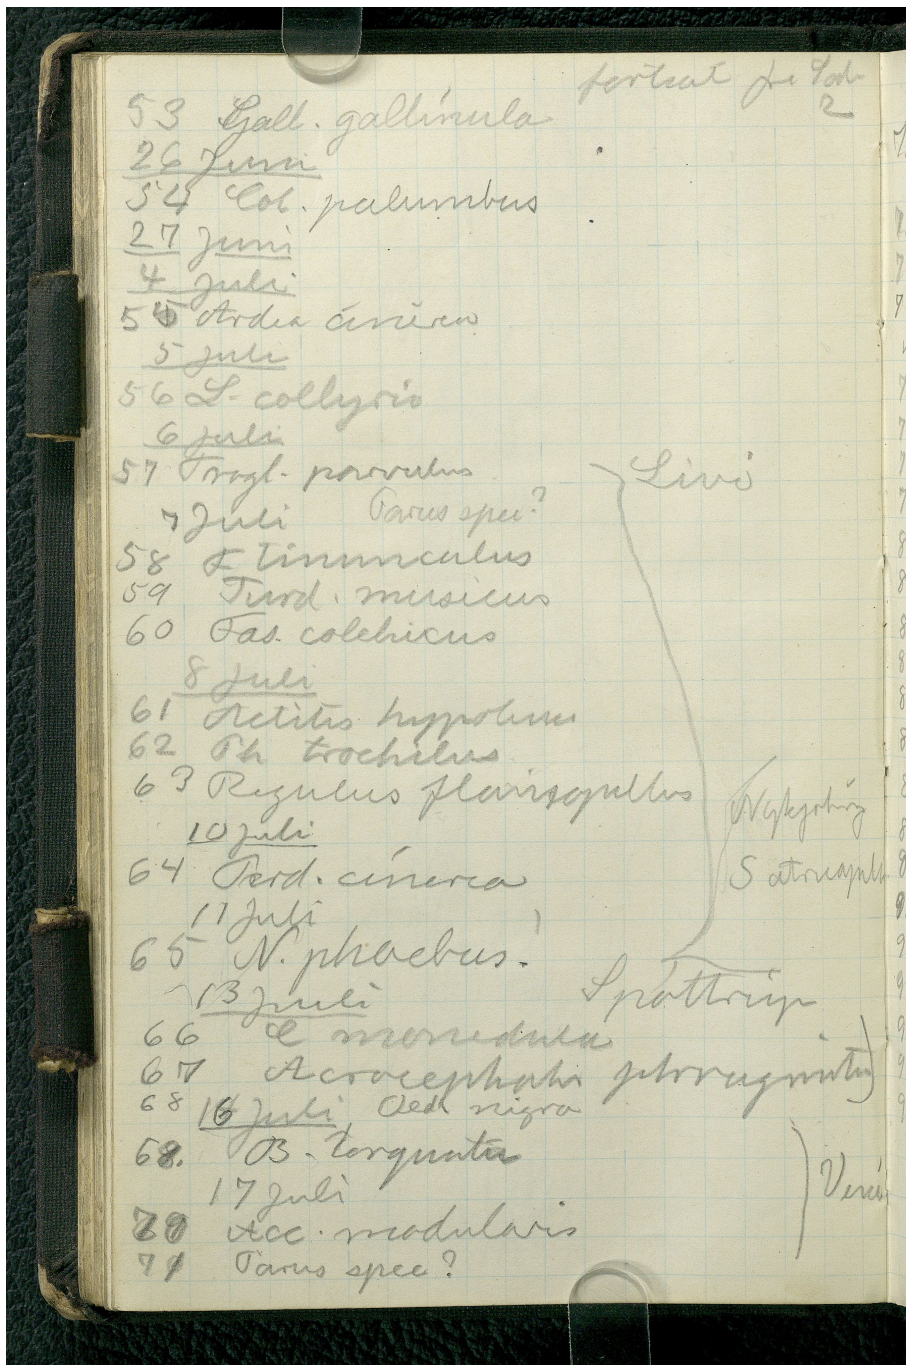 fortsat fra Side
2
53 Gall. gallinula
26 Juni
54 Col. palumbus
27 Juni
4 Juli
55 Ardea cinerea
5 Juli
56 L. collyrio
6 Juli
57 Trogl. parvulus
Livø
7 Juli Parus spec?
58 F tinnunculus
59 Turd. musicus
60 Fas. colchicus
8 Juli
61 Actitis hypoleuc
62 Ph trochilus
63 Regulus flavicapillus
Nykjøbing
10 Juli
64 Perd. cinerea
S atricapill
11 Juli
65 N. phaebus!
13 Juli
Spøttrup
66 C monedula
67 Acrocephalus phragmitis
68 16 Juli, Oed. nigra
69. B. torquata
17 Juli
70 Acc. modularis
71 Parus spec?